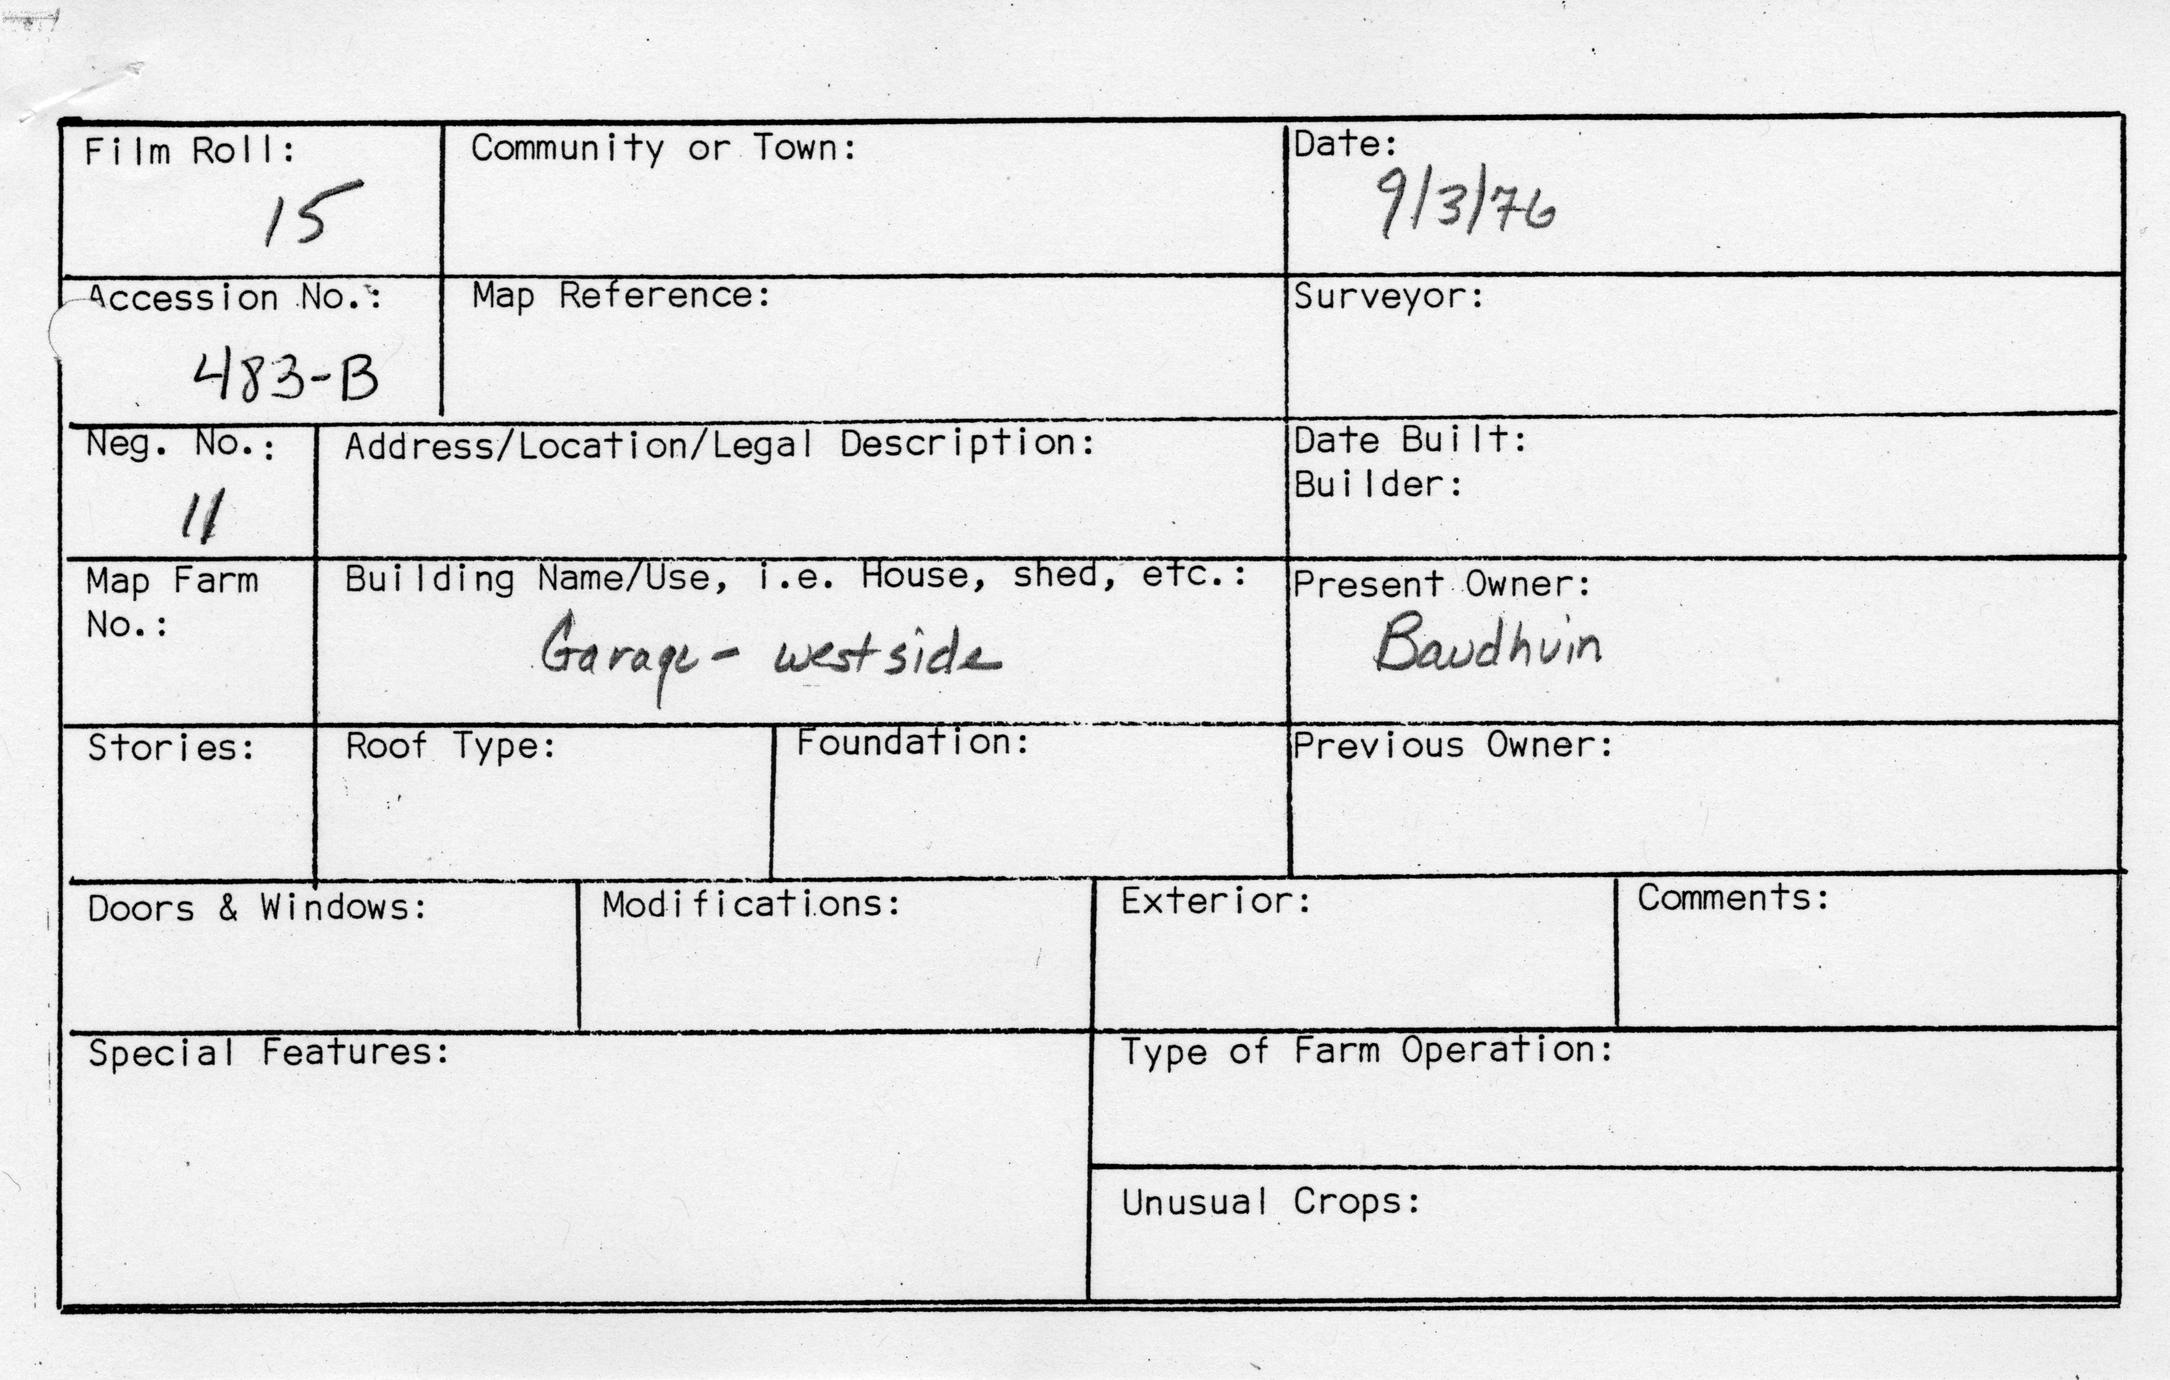 Film Roll:
15
Community or Town:
Date:
9/3/76
Accession No.:
483-B
Map Reference:
Surveyor:
Neg. No.:
11
Address/Location/Legal Description:
Date Built:
Builder:
Map Farm
No.:
Building Name/Use, i.e. House, shed, etc.:
Garage - west side
Present Owner:
Baudhuin
Stories:
Roof Type:
Foundation:
Previous Owner:
Doors & Windows:
Modifications:
Exterior:
Comments:
Special Features:
Type of Farm Operation:
Unusual Crops: